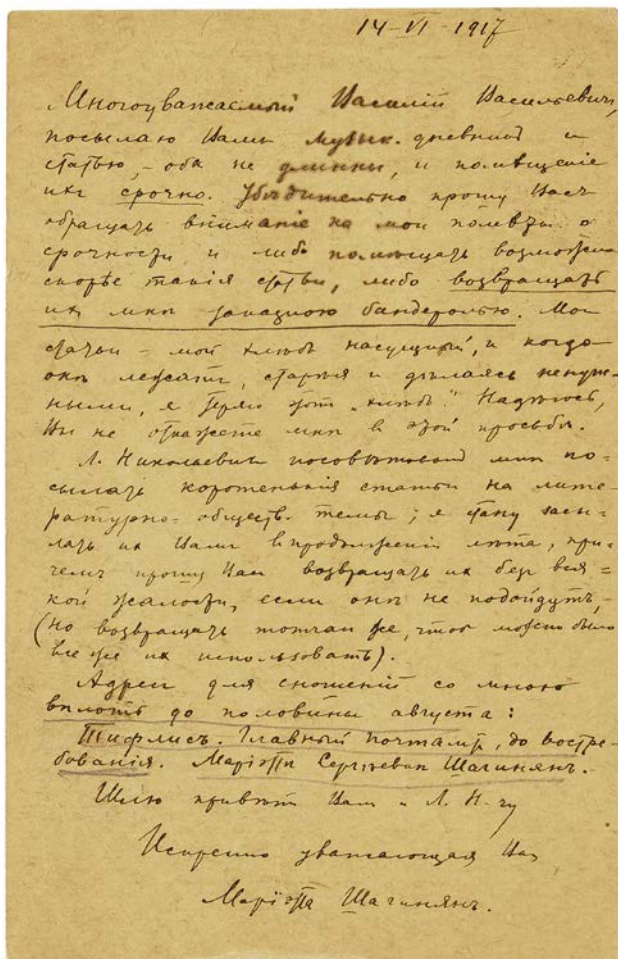 14-VI-1917
Многоуважаемый Василій Васильевич,
посылаю Вамъ музык. дневникъ и
статью, - оба не длинны, и помѣщеніе
ихъ срочно. Убѣдительно прошу Васъ
обращать вниманіе на мои пометы о
срочности и либо помѣщать возможно
скорѣе такія статьи, либо возвращать
ихъ мнѣ заказною бандеролью. Мои
статьи - мой хлѣбъ насущный, и когда
онѣ лежатъ, старѣя и дѣлаясь ненуж-
ными, я теряю этотъ „хлѣбъ". Надѣюсь,
Вы не откажете мнѣ в этой просьбѣ.
Л. Николаевичъ посовѣтовалъ мнѣ по-
сылать коротенькія статьи на лите-
ратурно-обществ. темы; я стану засы-
лать их Вамъ в продолженіи лѣта, при-
чемъ прошу Вас возвращать их без вся-
кой жалости, если онѣ не подойдутъ, -
(но возвращать тотчас же, чтоб можно было
все же их использовать).
Адрес для сношеній со мною
вплоть до половины августа:
Тифлисъ. Главный почтамтъ, до востре-
бованія. Маріэтта Сергѣевна Шагинянъ. -
Шлю привѣтъ Вам и Л. Н-чу
Искренно уважающая Вас
Маріэтта Шагинянъ.